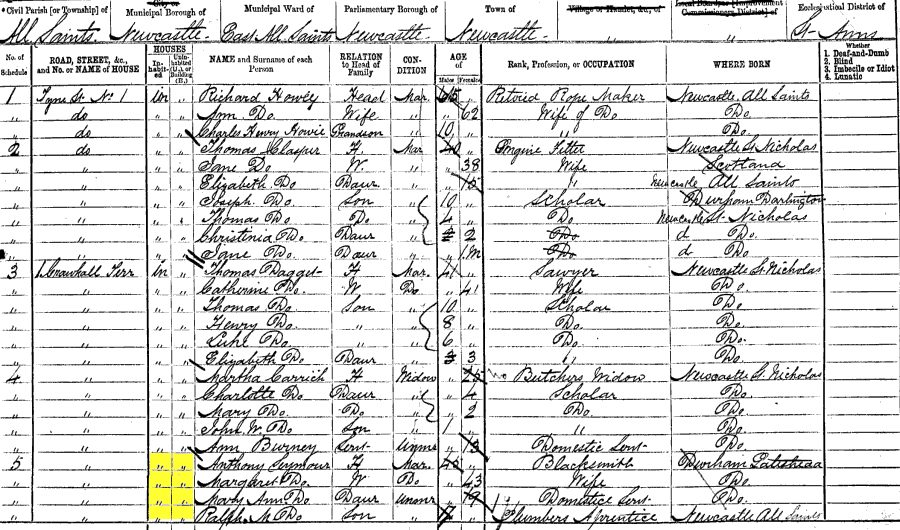 Civil Parish [or Township] of
City or
Municipal Borough of
Municipal Ward of
Parliamentary Borough of
Town of
Village or Hamlet, &c., of
Local Board, [or Improvement Commissioners District] of
Ecclesiastical District of
All Saints Newcastle East All Saints Newcastle Newcastle " " St Anns
No. of Schedule
ROAD, STREET, &c., and No. or NAME of HOUSE
HOUSES
In-habit-ed
Unin-habited (U.), or Building (B.)
NAME and Surname of each Person
RELATION to Head of Family
CON-DITION
AGE of
Males Females
Rank, Profession, or OCCUPATION
WHERE BORN
Whether
1. Deaf-and-Dumb
2. Blind
3. Imbecile or Idiot
4. Lunatic
1 Tyne St No 1 in " Richard Howey Head Mar 65 Retired Rope Maker Newcastle All Saints
" do " " Ann Do. Wife " " 62 Wife of Do Do.
" do " " Charles Henry Howie Grandson 10 " Do.
2 do " " Thomas H. Mar 40 Engine Fitter Newcastle St Nicholas
" " " " Jane Do. W. " " 38 Wife Scotland
" " " " Elizabeth Do Daur " 15 " Newcastle All Saints
" " " " Joseph Do Son 10 Scholar Durham Darlington
" " " " Thomas Do Do 4 Do. Newcastle St Nicholas
" " " " Christinia Do Daur 2 Do d Do.
" " " " Jane Do. Daur " 1m Do d Do.
3 1 Crawhall Terr in " Thomas Dagget H Mar. 41 Sawyer Newcastle St Nicholas
" " " " Catherine Do. W Do. " 41 Wife Do.
" " " " Thomas Do. Son 10 Scholar Do.
" " " " Henry Do. " 8 Do. Do.
" " " " Luke Do. " 6 Do. Do.
" " " " Elizabeth Do Daur 3 " Do.
4 " " " Martha Carrick H Widow " Butchers Widow Newcastle St Nicholas
" " " " Charlotte Do Daur " 4 Scholar Do.
" " " " Mary Do. Do. " 2 Do. Do.
" " " " John W. Do Son 1 " " Do.
" " " " Ann Burney Servt Unm 13 Domestic Servt Do.
5 " " " Anthony Seymour H Mar. Blacksmith Durham Gateshead
" " " " Margaret Do. W Do. " 43 Wife Do.
" " " " Mary Ann Do. Daur Unmr 19 Domestic Servt Do.
" " " " Ralph M Do Son " Plumbers Aprentice Newcastle All Saints